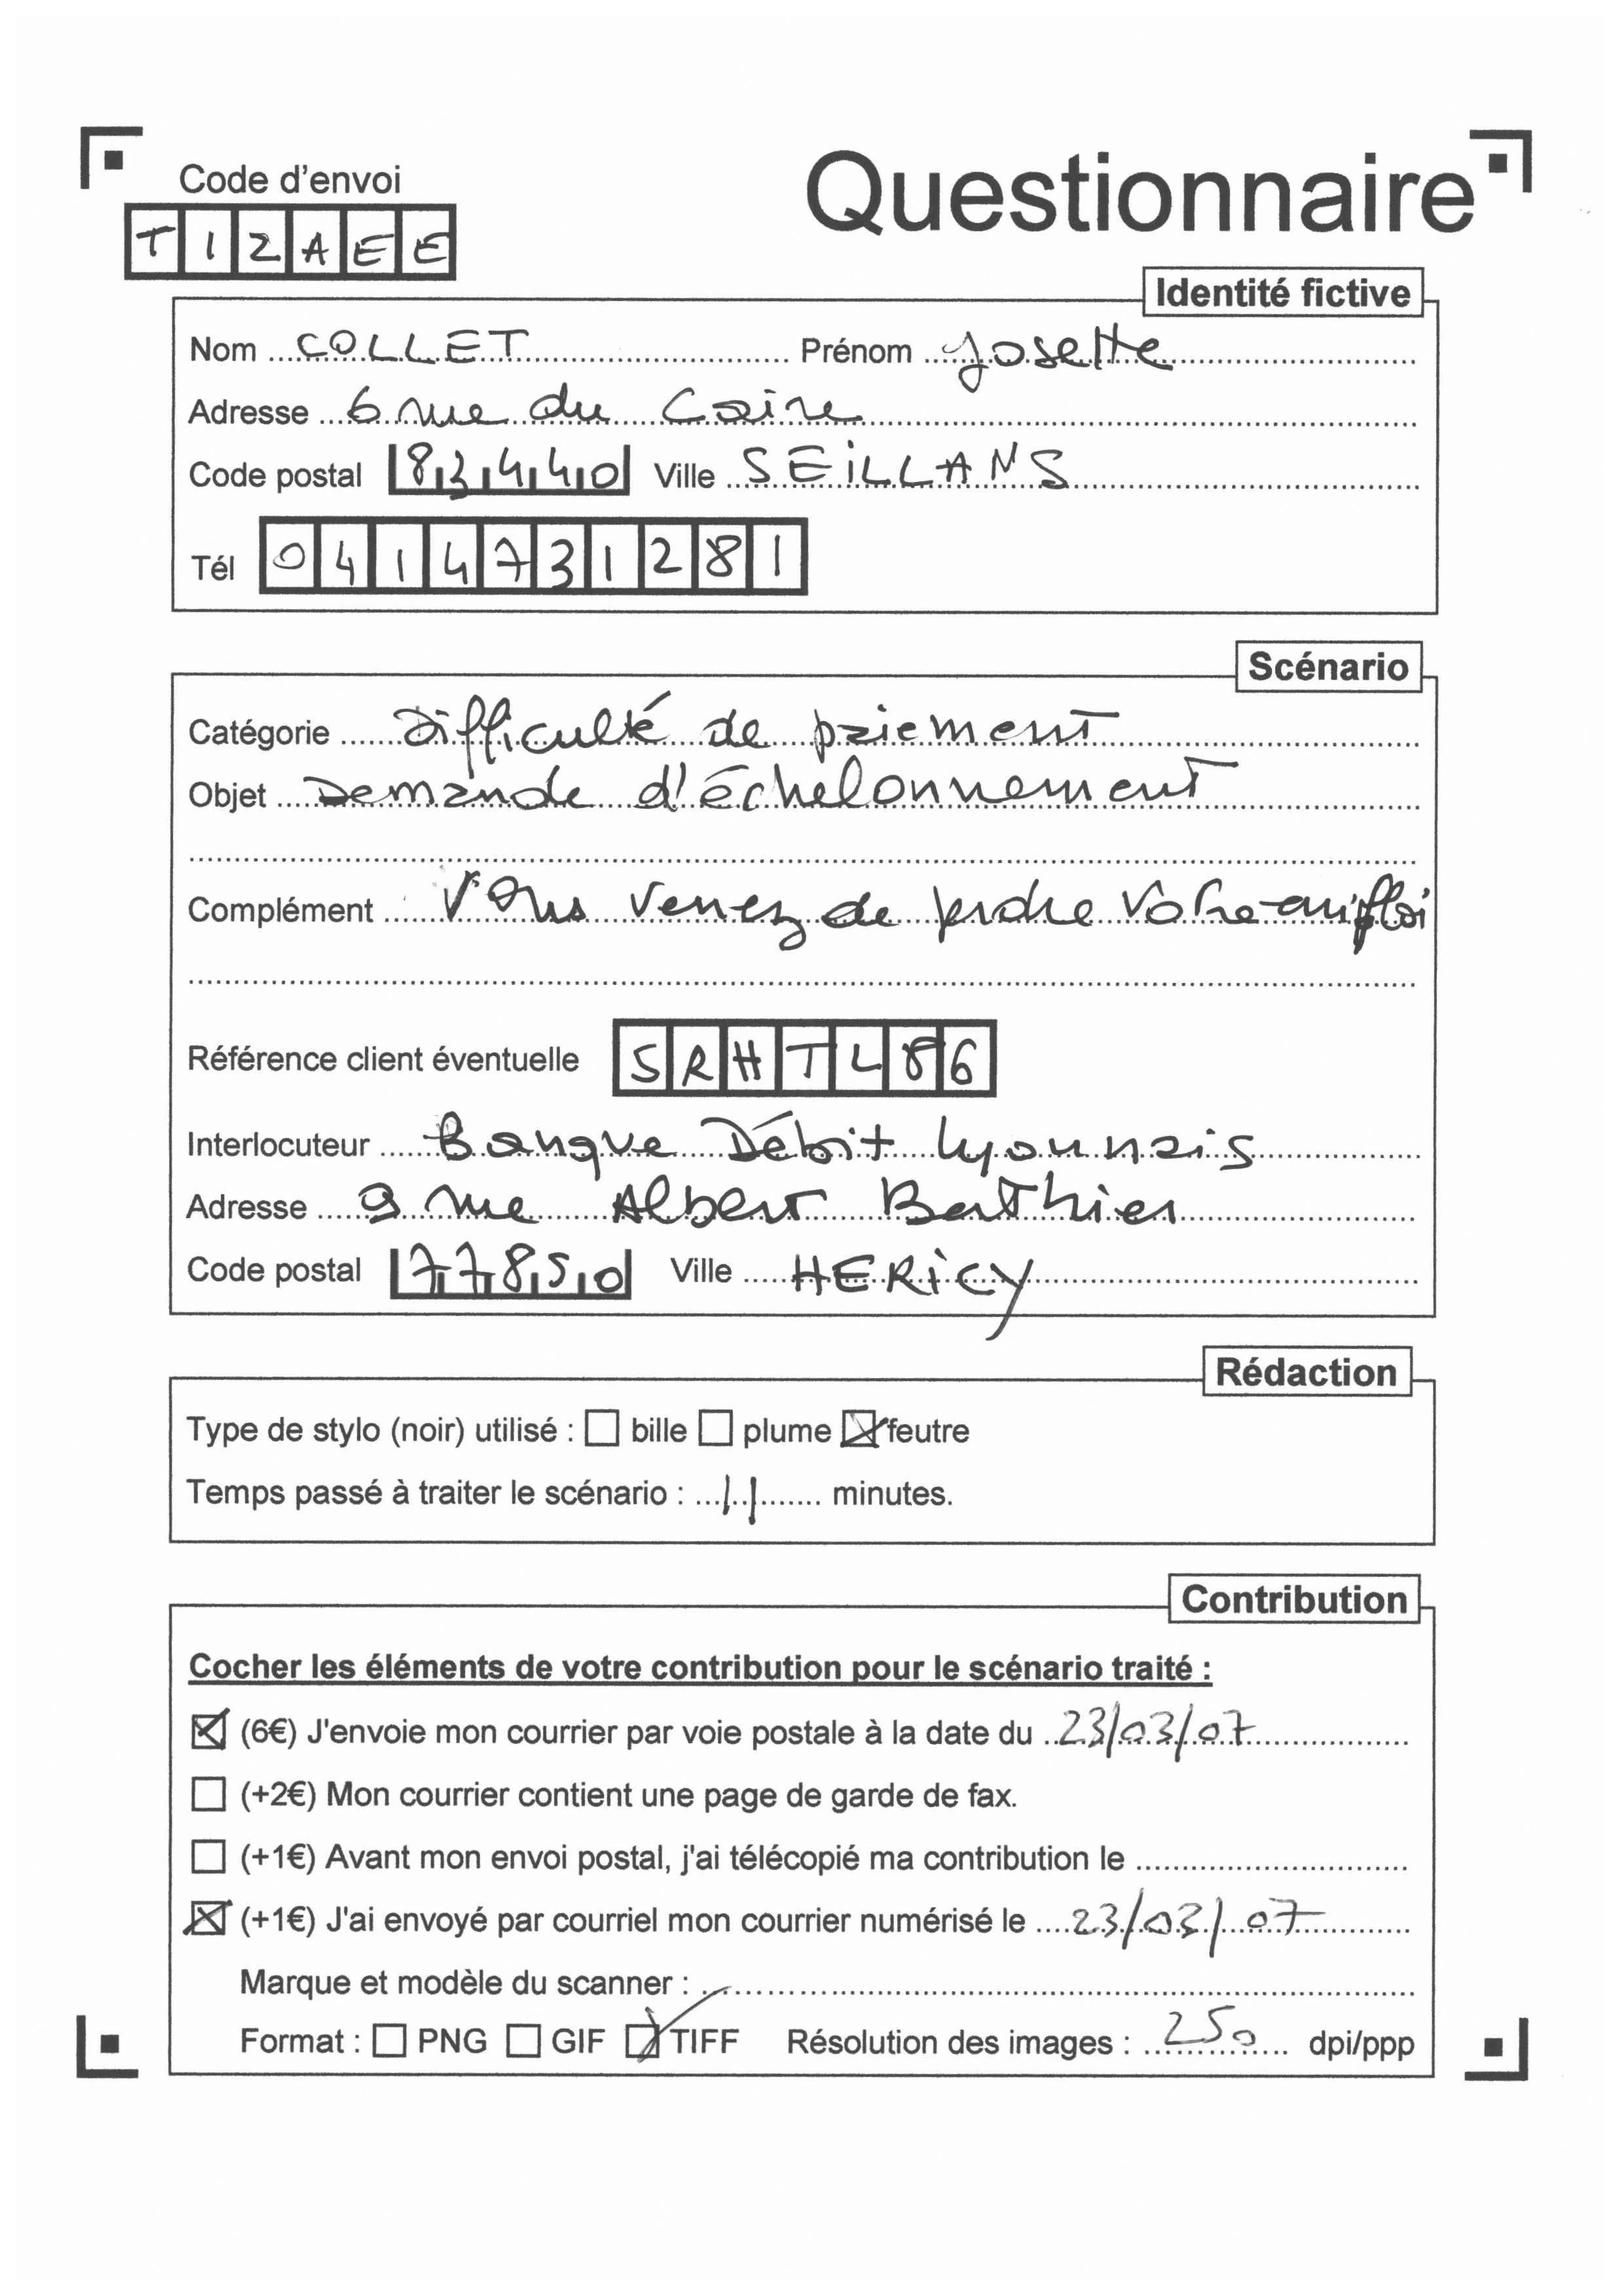 Code d'envoi
Questionnaire
T I Z A E E
Identité fictive
Nom COLLET Prénom Josette
Adresse 6 rue du Caire
Code postal 83440 Ville SEILLANS
Tél 0414731281
Scénario
Catégorie Difficulté de paiement
Objet Demande d'échelonnement
Complément Vous venez de perdre votre emploi
Référence client éventuelle SRHTL86
Interlocuteur Banque Débit Lyonnais
Adresse 9 rue Albert Berthier
Code postal 77850 Ville HERICY
Rédaction
Type de stylo (noir) utilisé : bille plume feutre
Temps passé à traiter le scénario : 11 minutes.
Contribution
Cocher les éléments de votre contribution pour le scénario traité :
(6€) J'envoie mon courrier par voie postale à la date du 23/03/07
(+2€) Mon courrier contient une page de garde de fax.
(+1€) Avant mon envoi postal, j'ai télécopié ma contribution le
(+1€) J'ai envoyé par courriel mon courrier numérisé le 23/03/07
Marque et modèle du scanner :
Format : PNG GIF TIFF Résolution des images : 250 dpi/ppp